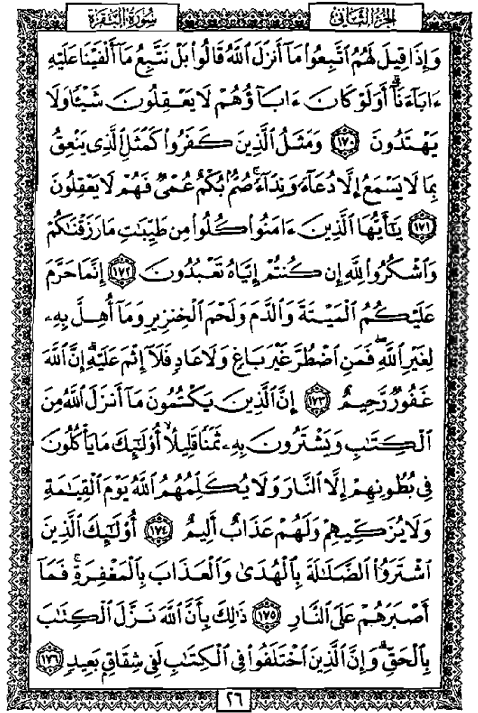 الجزء الثاني
سورة البقرة
وَإِذَا قِيلَ لَهُمُ اتَّبِعُوا مَا أَنزَلَ اللَّهُ قَالُوا بَلْ نَتَّبِعُ مَا أَلْفَيْنَا عَلَيْهِ
ءَابَاءَنَا أَوَلَوْ كَانَ ءَابَاؤُهُمْ لَا يَعْقِلُونَ شَيْئًا وَلَا
يَهْتَدُونَ ١٧٠ وَمَثَلُ الَّذِينَ كَفَرُوا كَمَثَلِ الَّذِي يَنْعِقُ
بِمَا لَا يَسْمَعُ إِلَّا دُعَاءً وَنِدَاءً صُمٌّ بُكْمٌ عُمْيٌ فَهُمْ لَا يَعْقِلُونَ
١٧١ يَٰأَيُّهَا الَّذِينَ ءَامَنُوا كُلُوا مِن طَيِّبَٰتِ مَا رَزَقْنَٰكُمْ
وَاشْكُرُوا لِلَّهِ إِن كُنتُمْ إِيَّاهُ تَعْبُدُونَ ١٧٢ إِنَّمَا حَرَّمَ
عَلَيْكُمُ الْمَيْتَةَ وَالدَّمَ وَلَحْمَ الْخِنزِيرِ وَمَا أُهِلَّ بِهِ
لِغَيْرِ اللَّهِ فَمَنِ اضْطُرَّ غَيْرَ بَاغٍ وَلَا عَادٍ فَلَا إِثْمَ عَلَيْهِ إِنَّ اللَّهَ
غَفُورٌ رَّحِيمٌ ١٧٣ إِنَّ الَّذِينَ يَكْتُمُونَ مَا أَنزَلَ اللَّهُ مِنَ
الْكِتَٰبِ وَيَشْتَرُونَ بِهِ ثَمَنًا قَلِيلًا أُولَٰئِكَ مَا يَأْكُلُونَ
فِي بُطُونِهِمْ إِلَّا النَّارَ وَلَا يُكَلِّمُهُمُ اللَّهُ يَوْمَ الْقِيَٰمَةِ
وَلَا يُزَكِّيهِمْ وَلَهُمْ عَذَابٌ أَلِيمٌ ١٧٤ أُولَٰئِكَ الَّذِينَ
اشْتَرَوُا الضَّلَٰلَةَ بِالْهُدَىٰ وَالْعَذَابَ بِالْمَغْفِرَةِ فَمَا
أَصْبَرَهُمْ عَلَى النَّارِ ١٧٥ ذَٰلِكَ بِأَنَّ اللَّهَ نَزَّلَ الْكِتَٰبَ
بِالْحَقِّ وَإِنَّ الَّذِينَ اخْتَلَفُوا فِي الْكِتَٰبِ لَفِي شِقَاقٍ بَعِيدٍ ١٧٦
٢٦